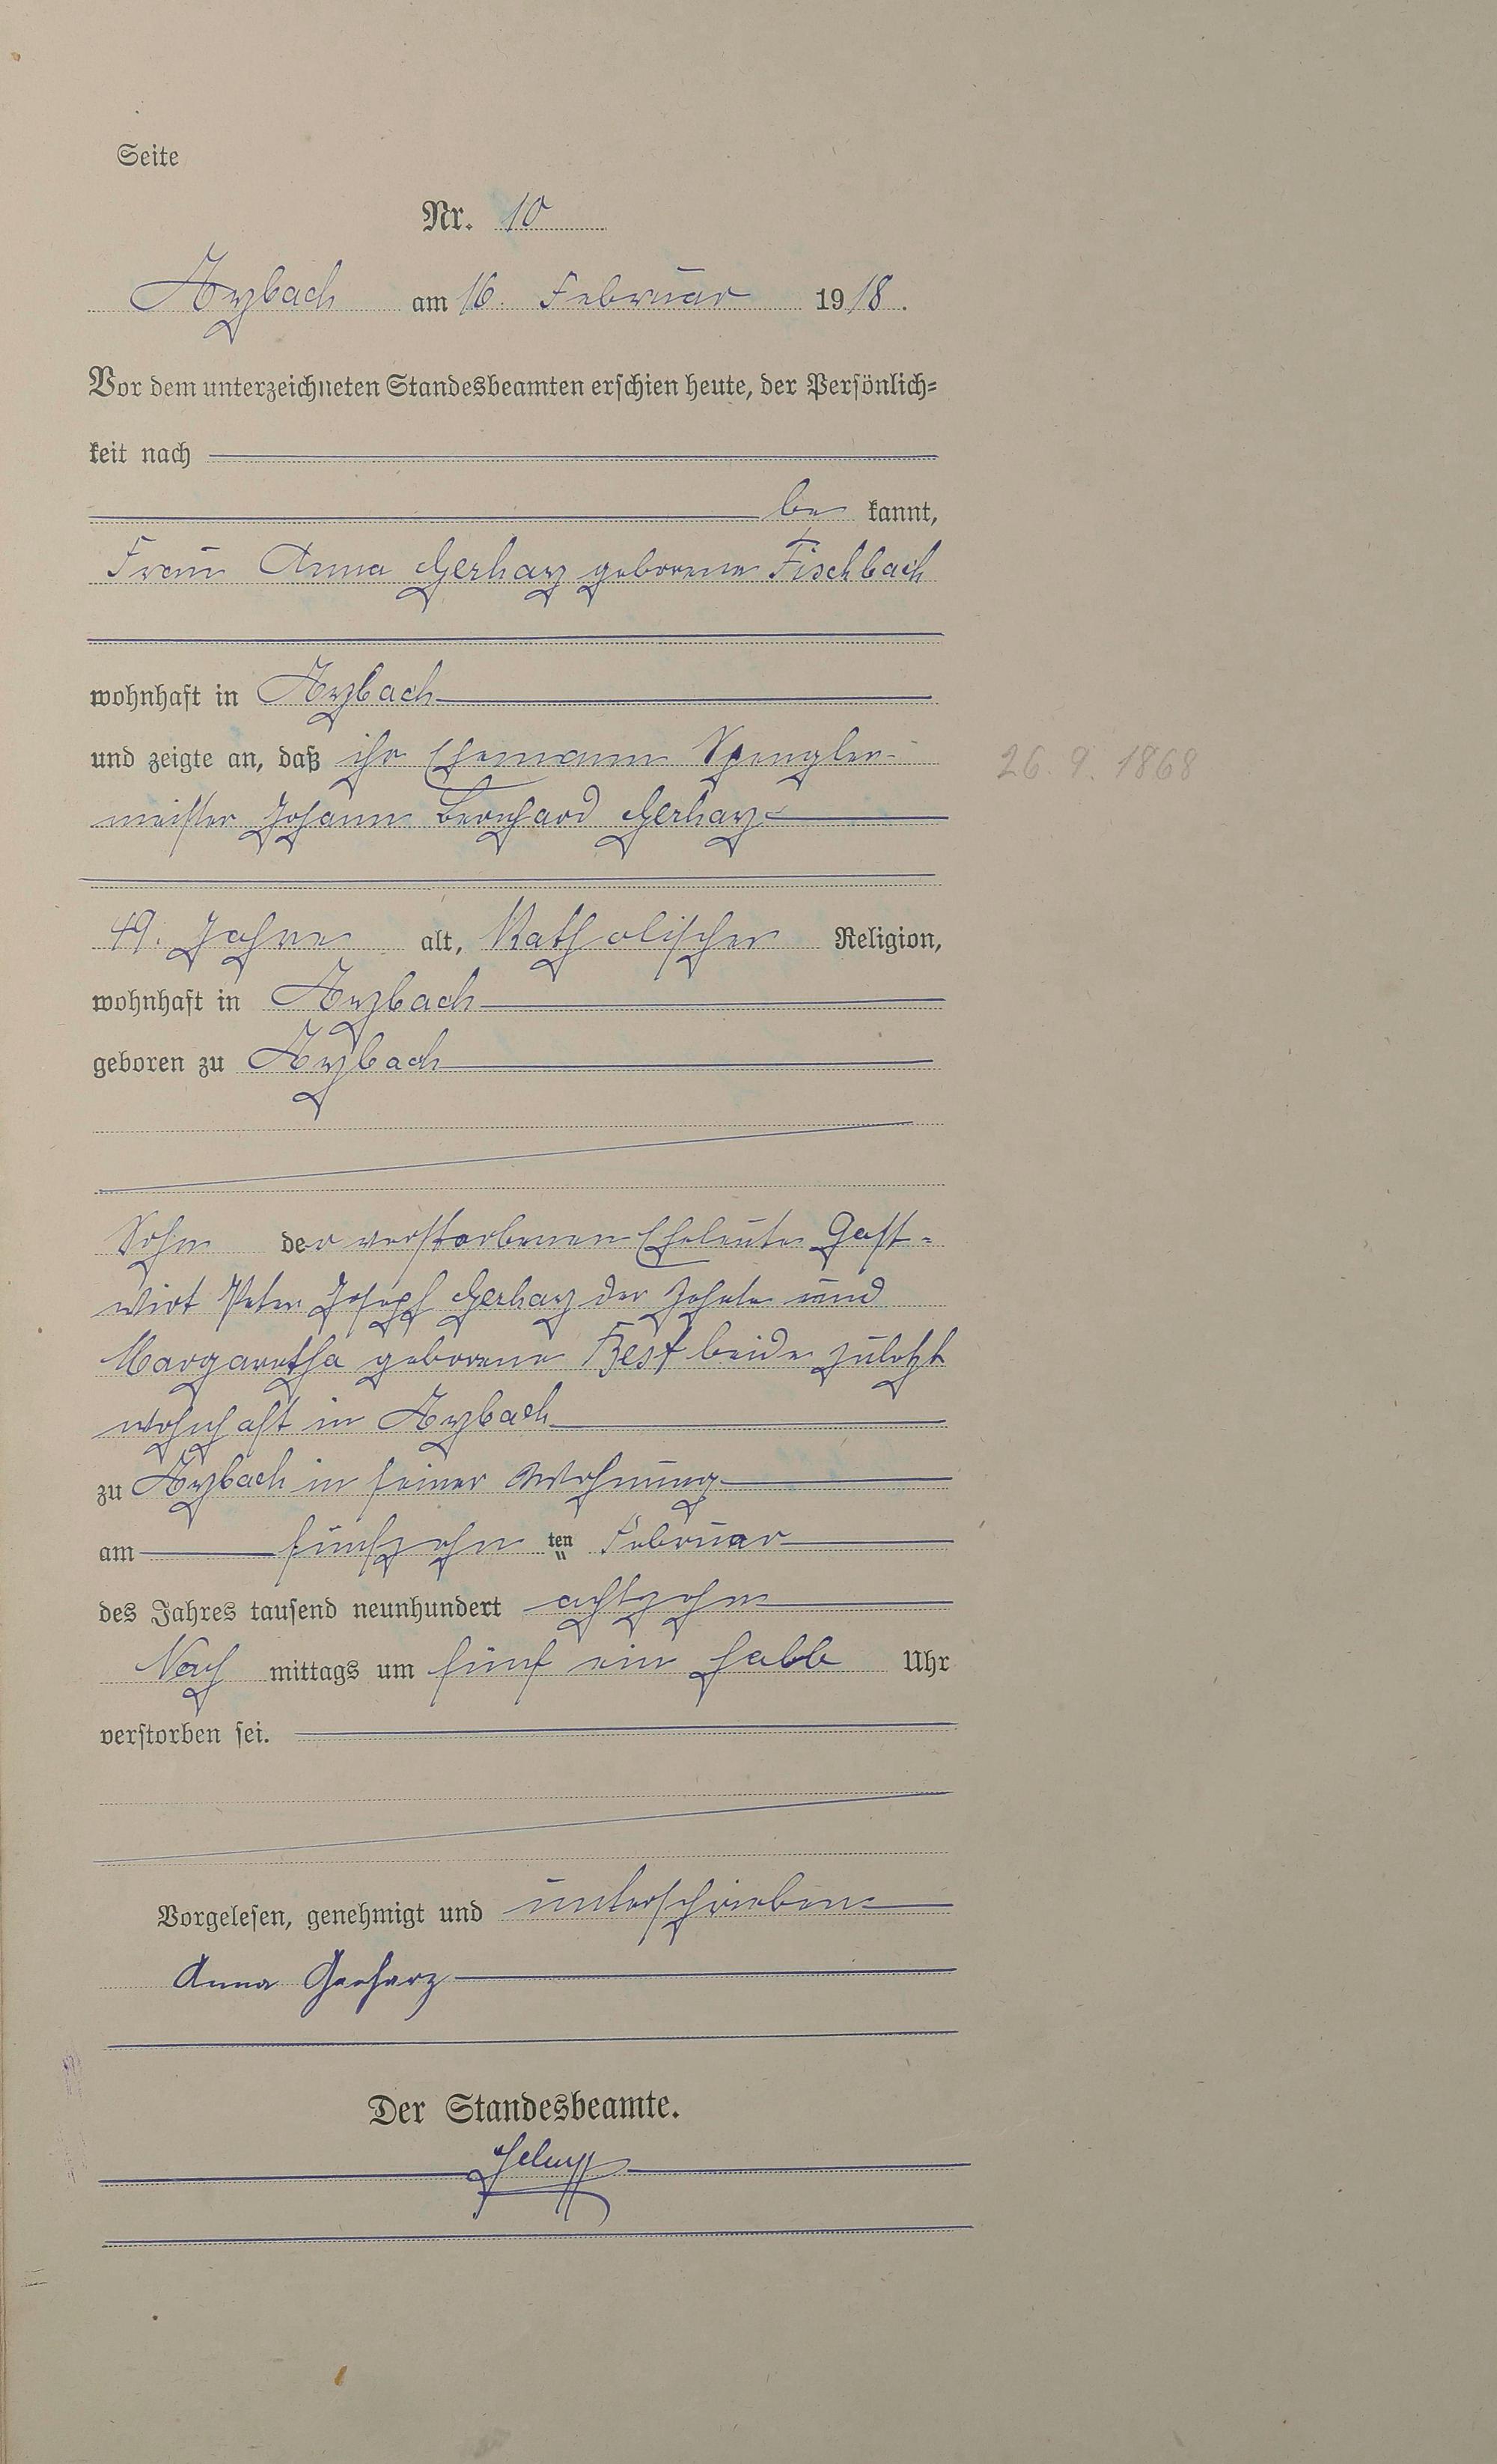 Seite
Nr. 10
Arzbach am 16. Februar 1918.
Vor dem unterzeichneten Standesbeamten erschien heute, der Persönlich=
keit nach
be kannt,
Frau Anna Gerharz geborene Fischbach
wohnhaft in Arzbach
und zeigte an, daß ihr Ehemann Spengler-
meister Johann Bernhard Gerharz
26.9.1868
49. Jahre alt, Katholischer Religion,
wohnhaft in Arzbach
geboren zu Arzbach
Sohn der verstorbenen Eheleute Gast-
wirt Peter Joseph Gerharz der Zehnte und
Margaretha geborene Best beide zuletzt
wohnhaft in Arzbach
zu Arzbach in seiner Wohnung
am fünfzehn ten Februar
des Jahres tausend neunhundert achtzehn
Nach mittags um fünf ein halb Uhr
verstorben sei.
Vorgelesen, genehmigt und unterschrieben
Anna Gerharz
Der Standesbeamte.